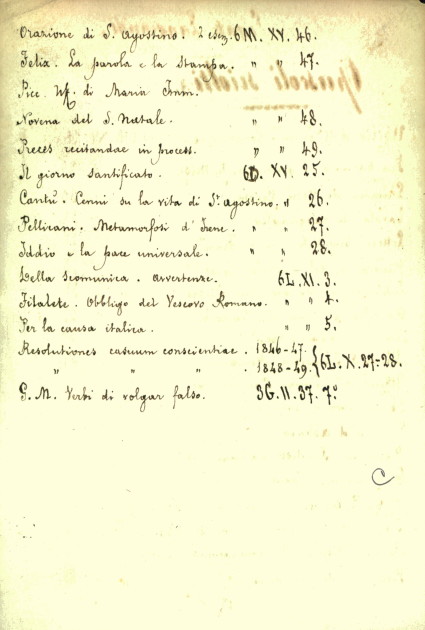 Orazione di S. Agostino. 2 esez. 6M. XV. 46.
Felix. La parola e la Stampa. " " 47.
Picc. Uf. di Maria Imm.
Novena del S. Natale. " " 48.
Preces recitandae in process. " " 49.
Il giorno santificato. 6D. XV. 25.
Cantù. Cenni su la vita di S. Agostino. " 26.
Pellicani. Metamorfosi d'Irene. " " 27.
Iddio e la pace universale. " " 28.
Della scomunica. Avvertenze. 6L. XI. 3.
Filalete. Obbligo del Vescovo Romano. " " 4.
Per la causa italica. " " 5.
Resolutiones casuum conscientiae. 1846-47. { 6L. X. 27-28.
" " " . 1848-49.
G. M. Verbi di volgar falso. 3G. II. 37. 7°
C